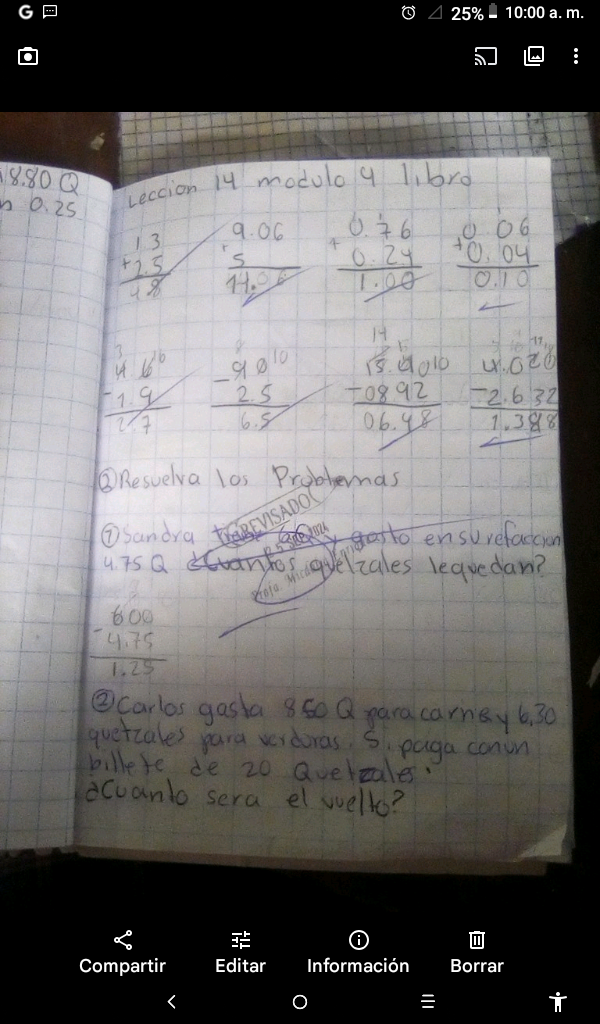 25% 10:00 a. m.
18.80 Q
0.25
Leccion 14 modulo 4 libro
13 9.06 0.76 0.06
+2.5 +5 +0.24 +0.04
14.06 1.00 0.10
-1.9 -2.5 -08.92 -2.632
2.7 6.5 06.48
② Resuelva los Problemas
REVISADO
① Sandra y gasto en su refaccion
4.75 Q ¿Cuantos quetzales le quedan?
600
-4.75
1.25
② Carlos gasta 850 Q para carne y 6,30
quetzales para verduras. Si paga con un
billete de 20 Quetzales.
¿Cuanto sera el vuelto?
Compartir Editar Información Borrar